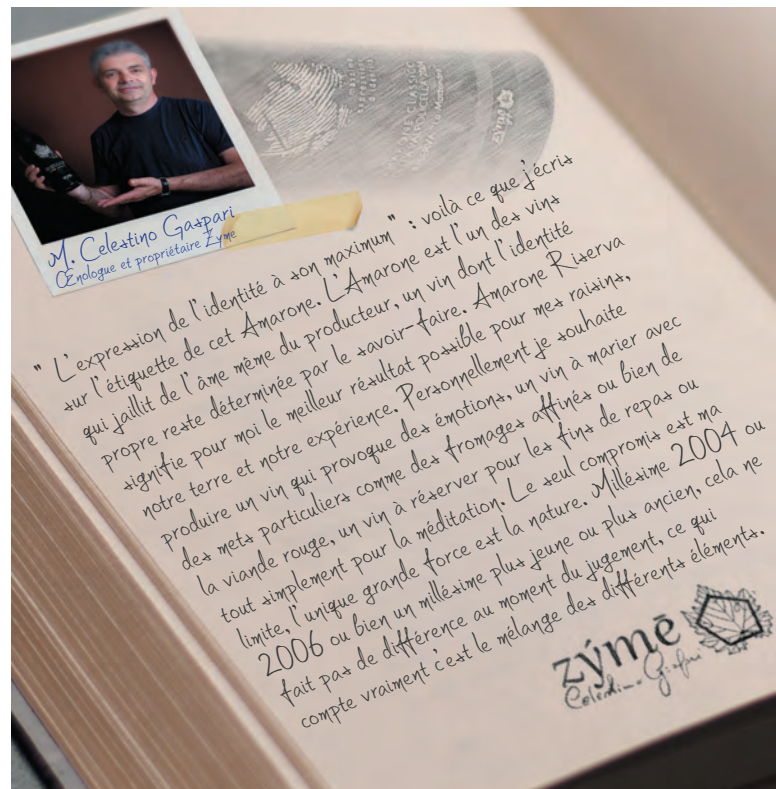 M. Celestino Gaspari
Œnologue et propriétaire Zyme
" L'expression de l'identité à son maximum" : voilà ce que j'écris
sur l'étiquette de cet Amarone. L'Amarone est l'un des vins
qui jaillit de l'âme même du producteur, un vin dont l'identité
propre reste déterminée par le savoir-faire. Amarone Riserva
signifie pour moi le meilleur résultat possible pour mes raisins,
notre terre et notre expérience. Personnellement je souhaite
produire un vin qui provoque des émotions, un vin à marier avec
des mets particuliers comme des fromages affinés ou bien de
la viande rouge, un vin à réserver pour les fins de repas ou
tout simplement pour la méditation. Le seul compromis est ma
limite, l'unique grande force est la nature. Millésime 2004 ou
2006 ou bien un millésime plus jeune ou plus ancien, cela ne
fait pas de différence au moment du jugement, ce qui
compte vraiment c'est le mélange des différents éléments.
zýmē
Celestino Gaspari